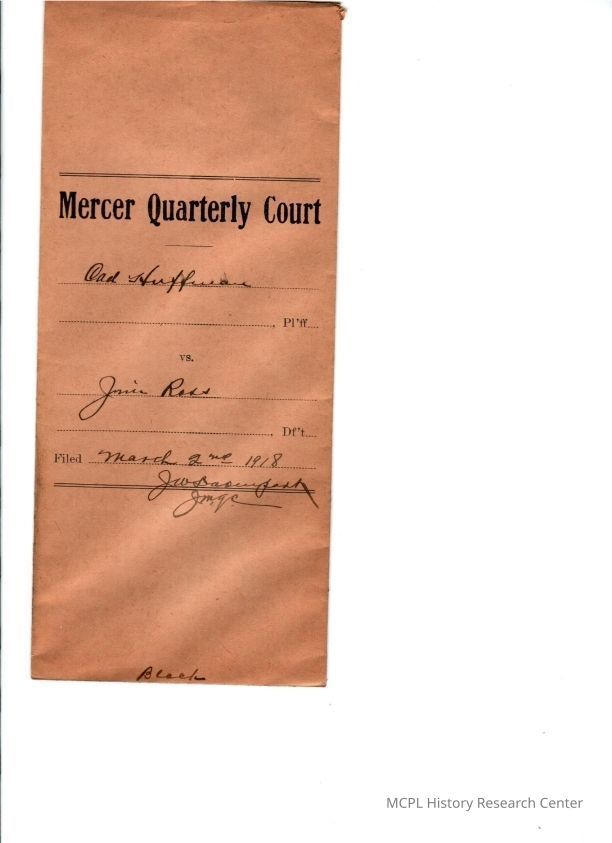 Mercer Quarterly Court
Oad Huffman
Pl'ff
vs.
Ross
Df't
Filed March 2nd 1918
Black
MCPL History Research Center